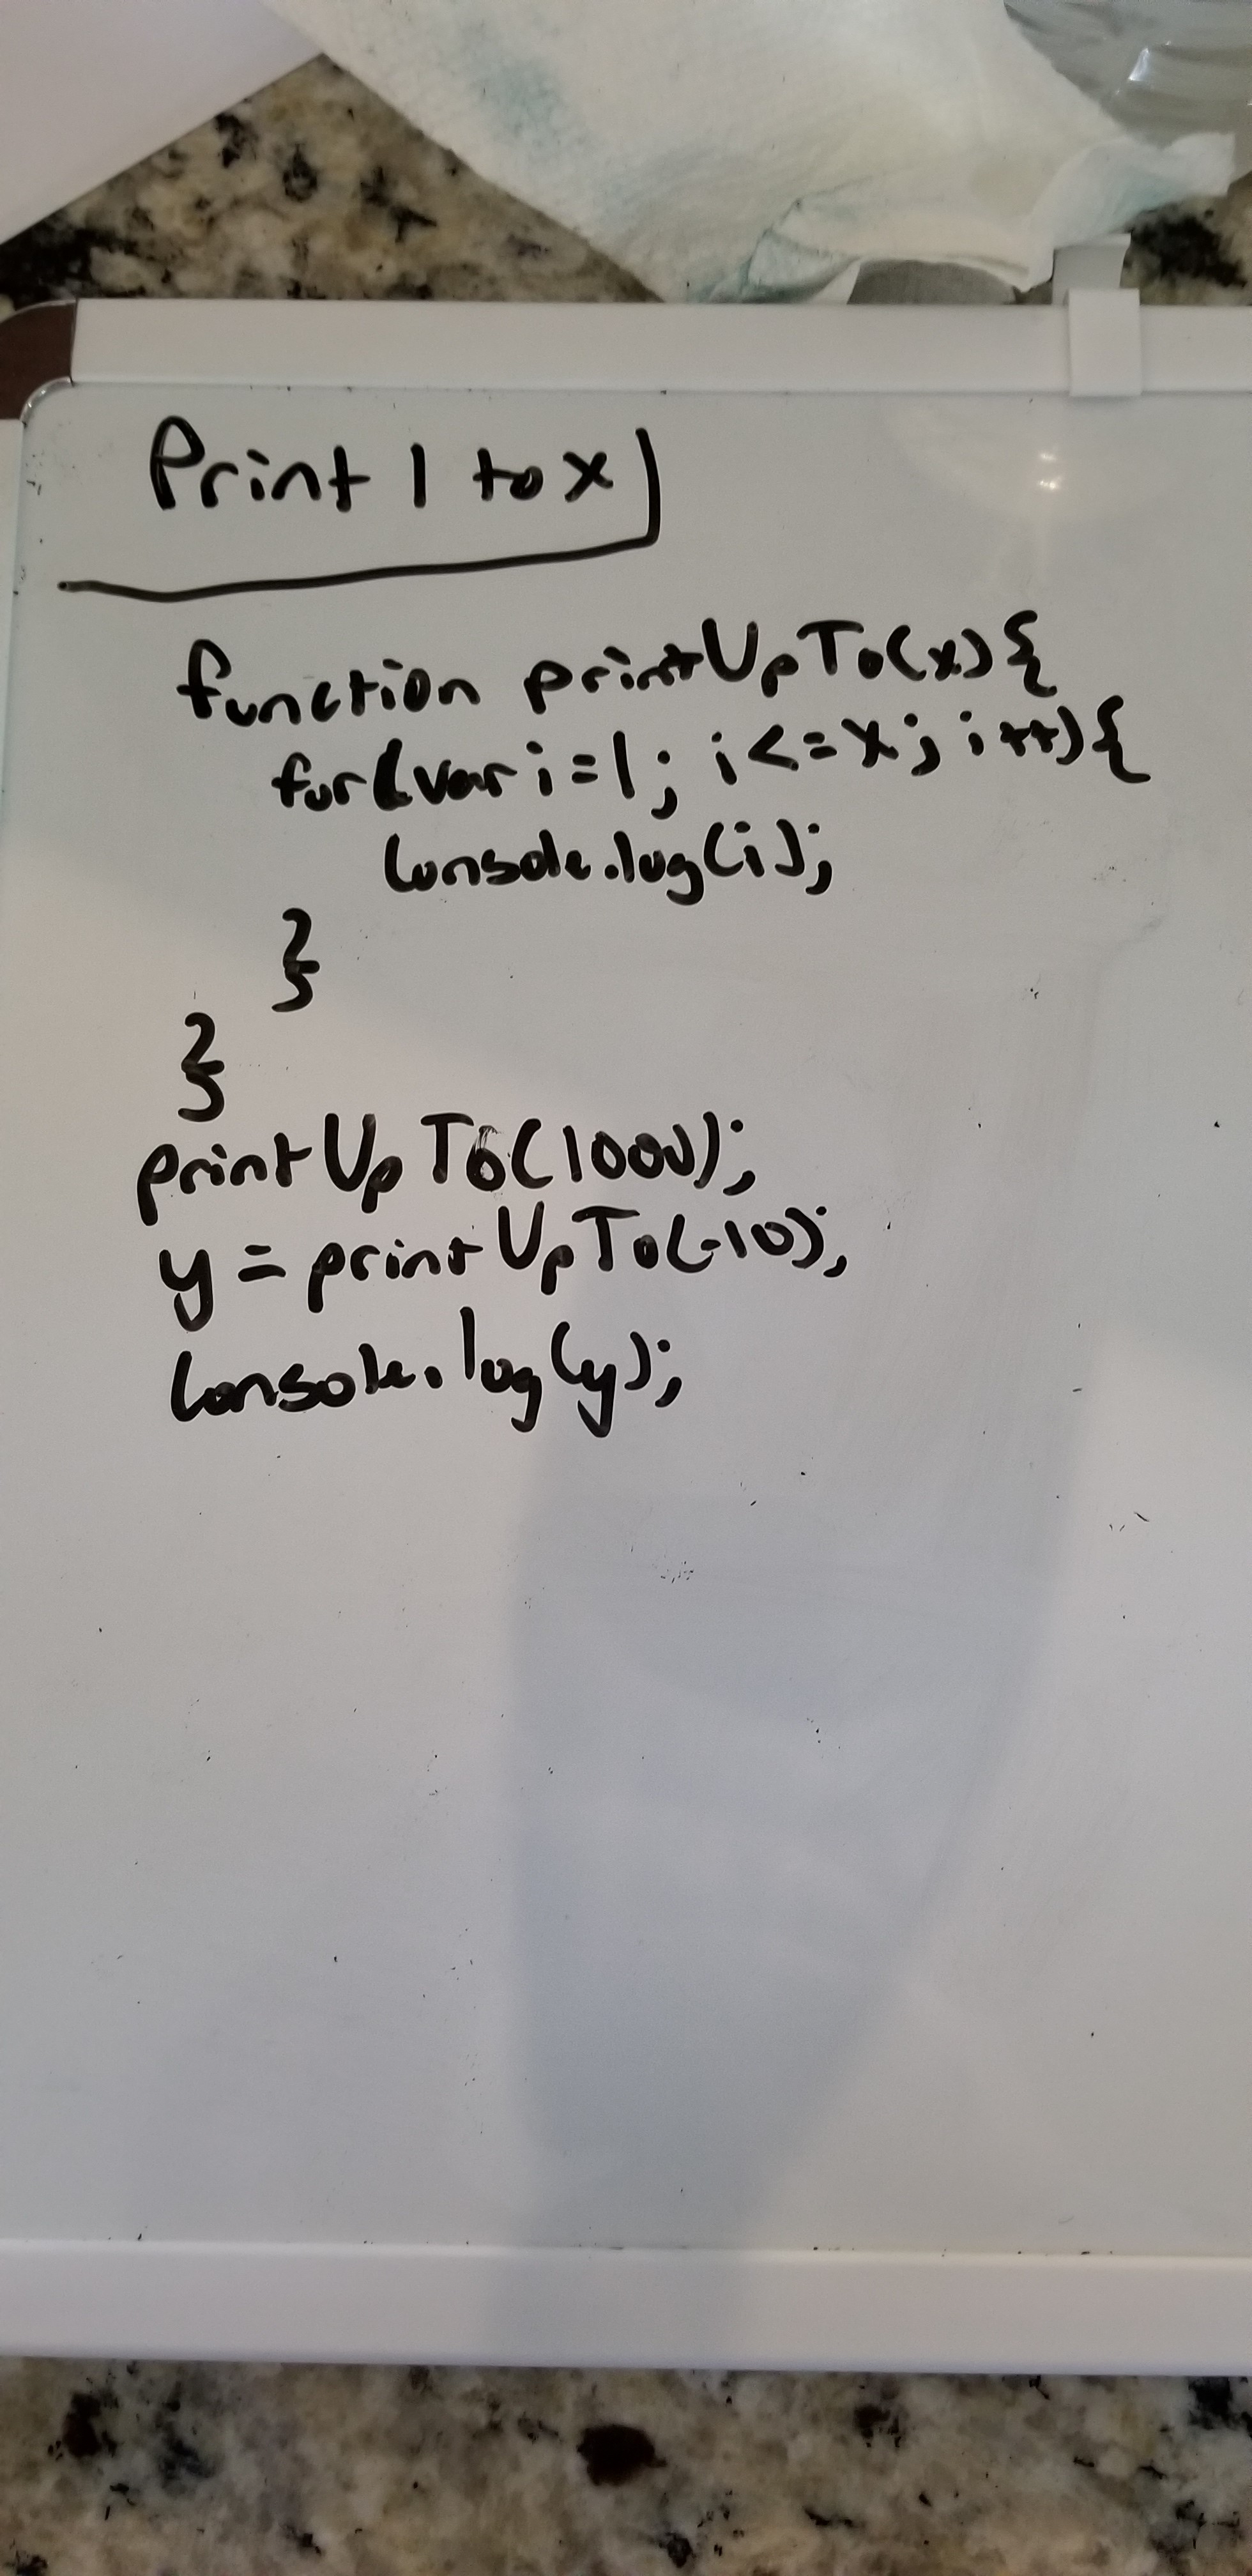 Print 1 to x
function printUpTo(x){
for(var i=1; i<=x; i++){
console.log(i);
}
}
printUpTo(1000);
y = printUpTo(-10);
console.log(y);